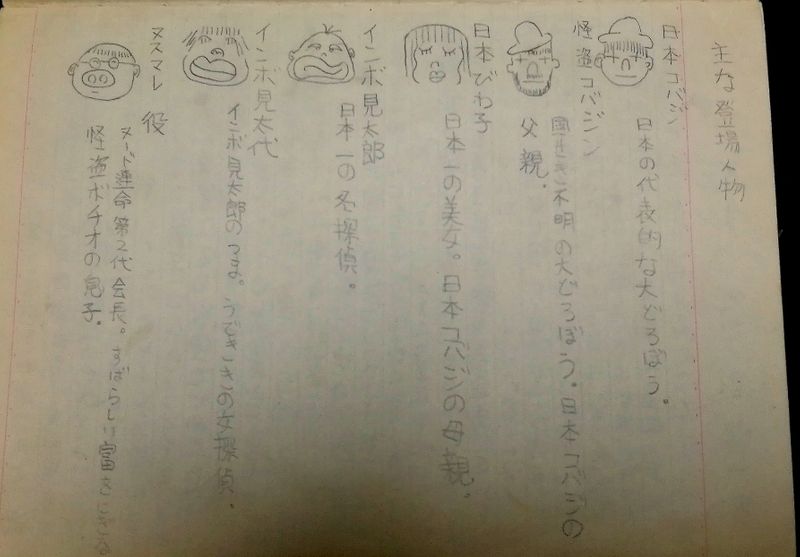 主な登場人物
日本コバジ
日本の代表的な大どろぼう。
怪盗コバジン
国せき不明の大どろぼう。日本コバジの
父親。
日本びわ子
日本一の美女。日本コバジの母親。
インボ見太郎
日本一の名探偵。
インボ見太代
インボ見太郎のつま。うできゝの女探偵。
ヌスマレ役
ヌード連命第2代会長。すばらしい富
怪盗ボチオの息子。